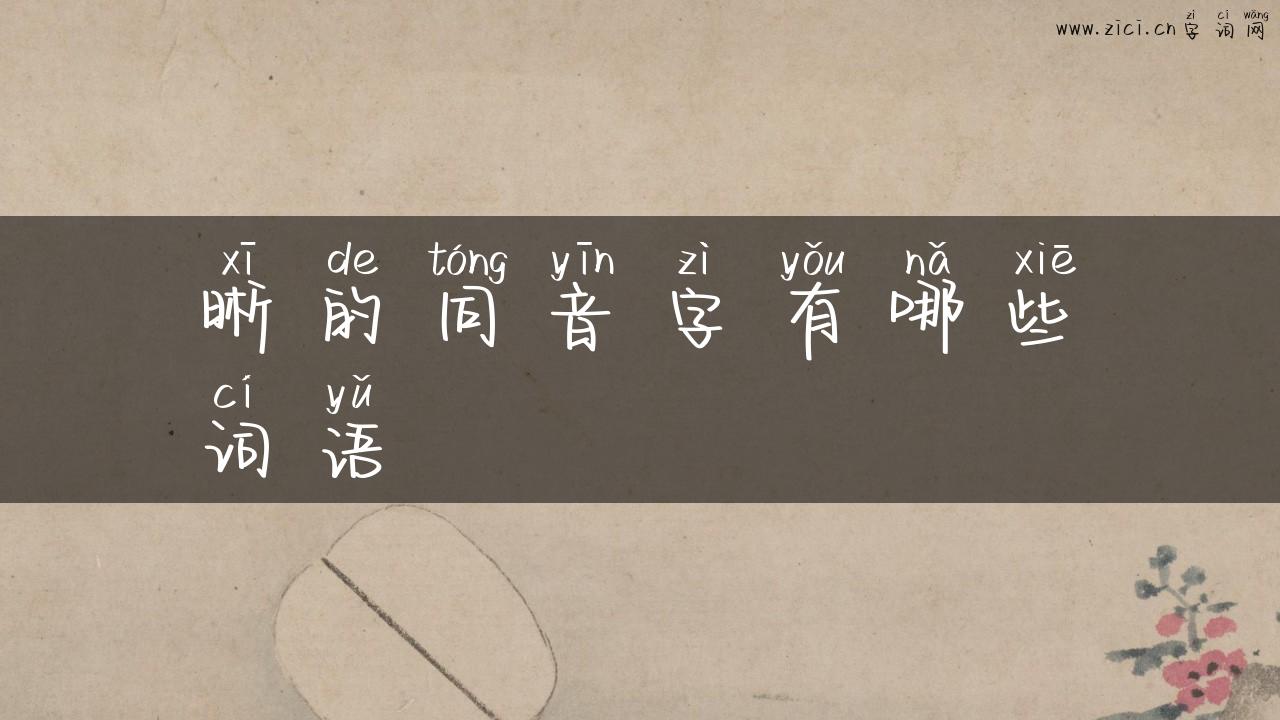 zì cí wǎng
www.zici.cn 字词网
xī de tóng yīn zì yǒu nǎ xiē
晰的同音字有哪些
cí yǔ
词语